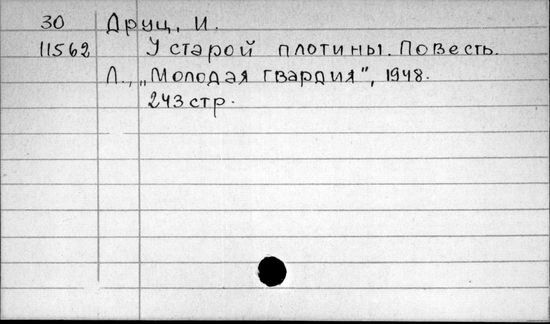 30 Друц, И.
11562 У старой плотины. Повесть.
Л., „Молодая гвардия", 1948.
243 стр.